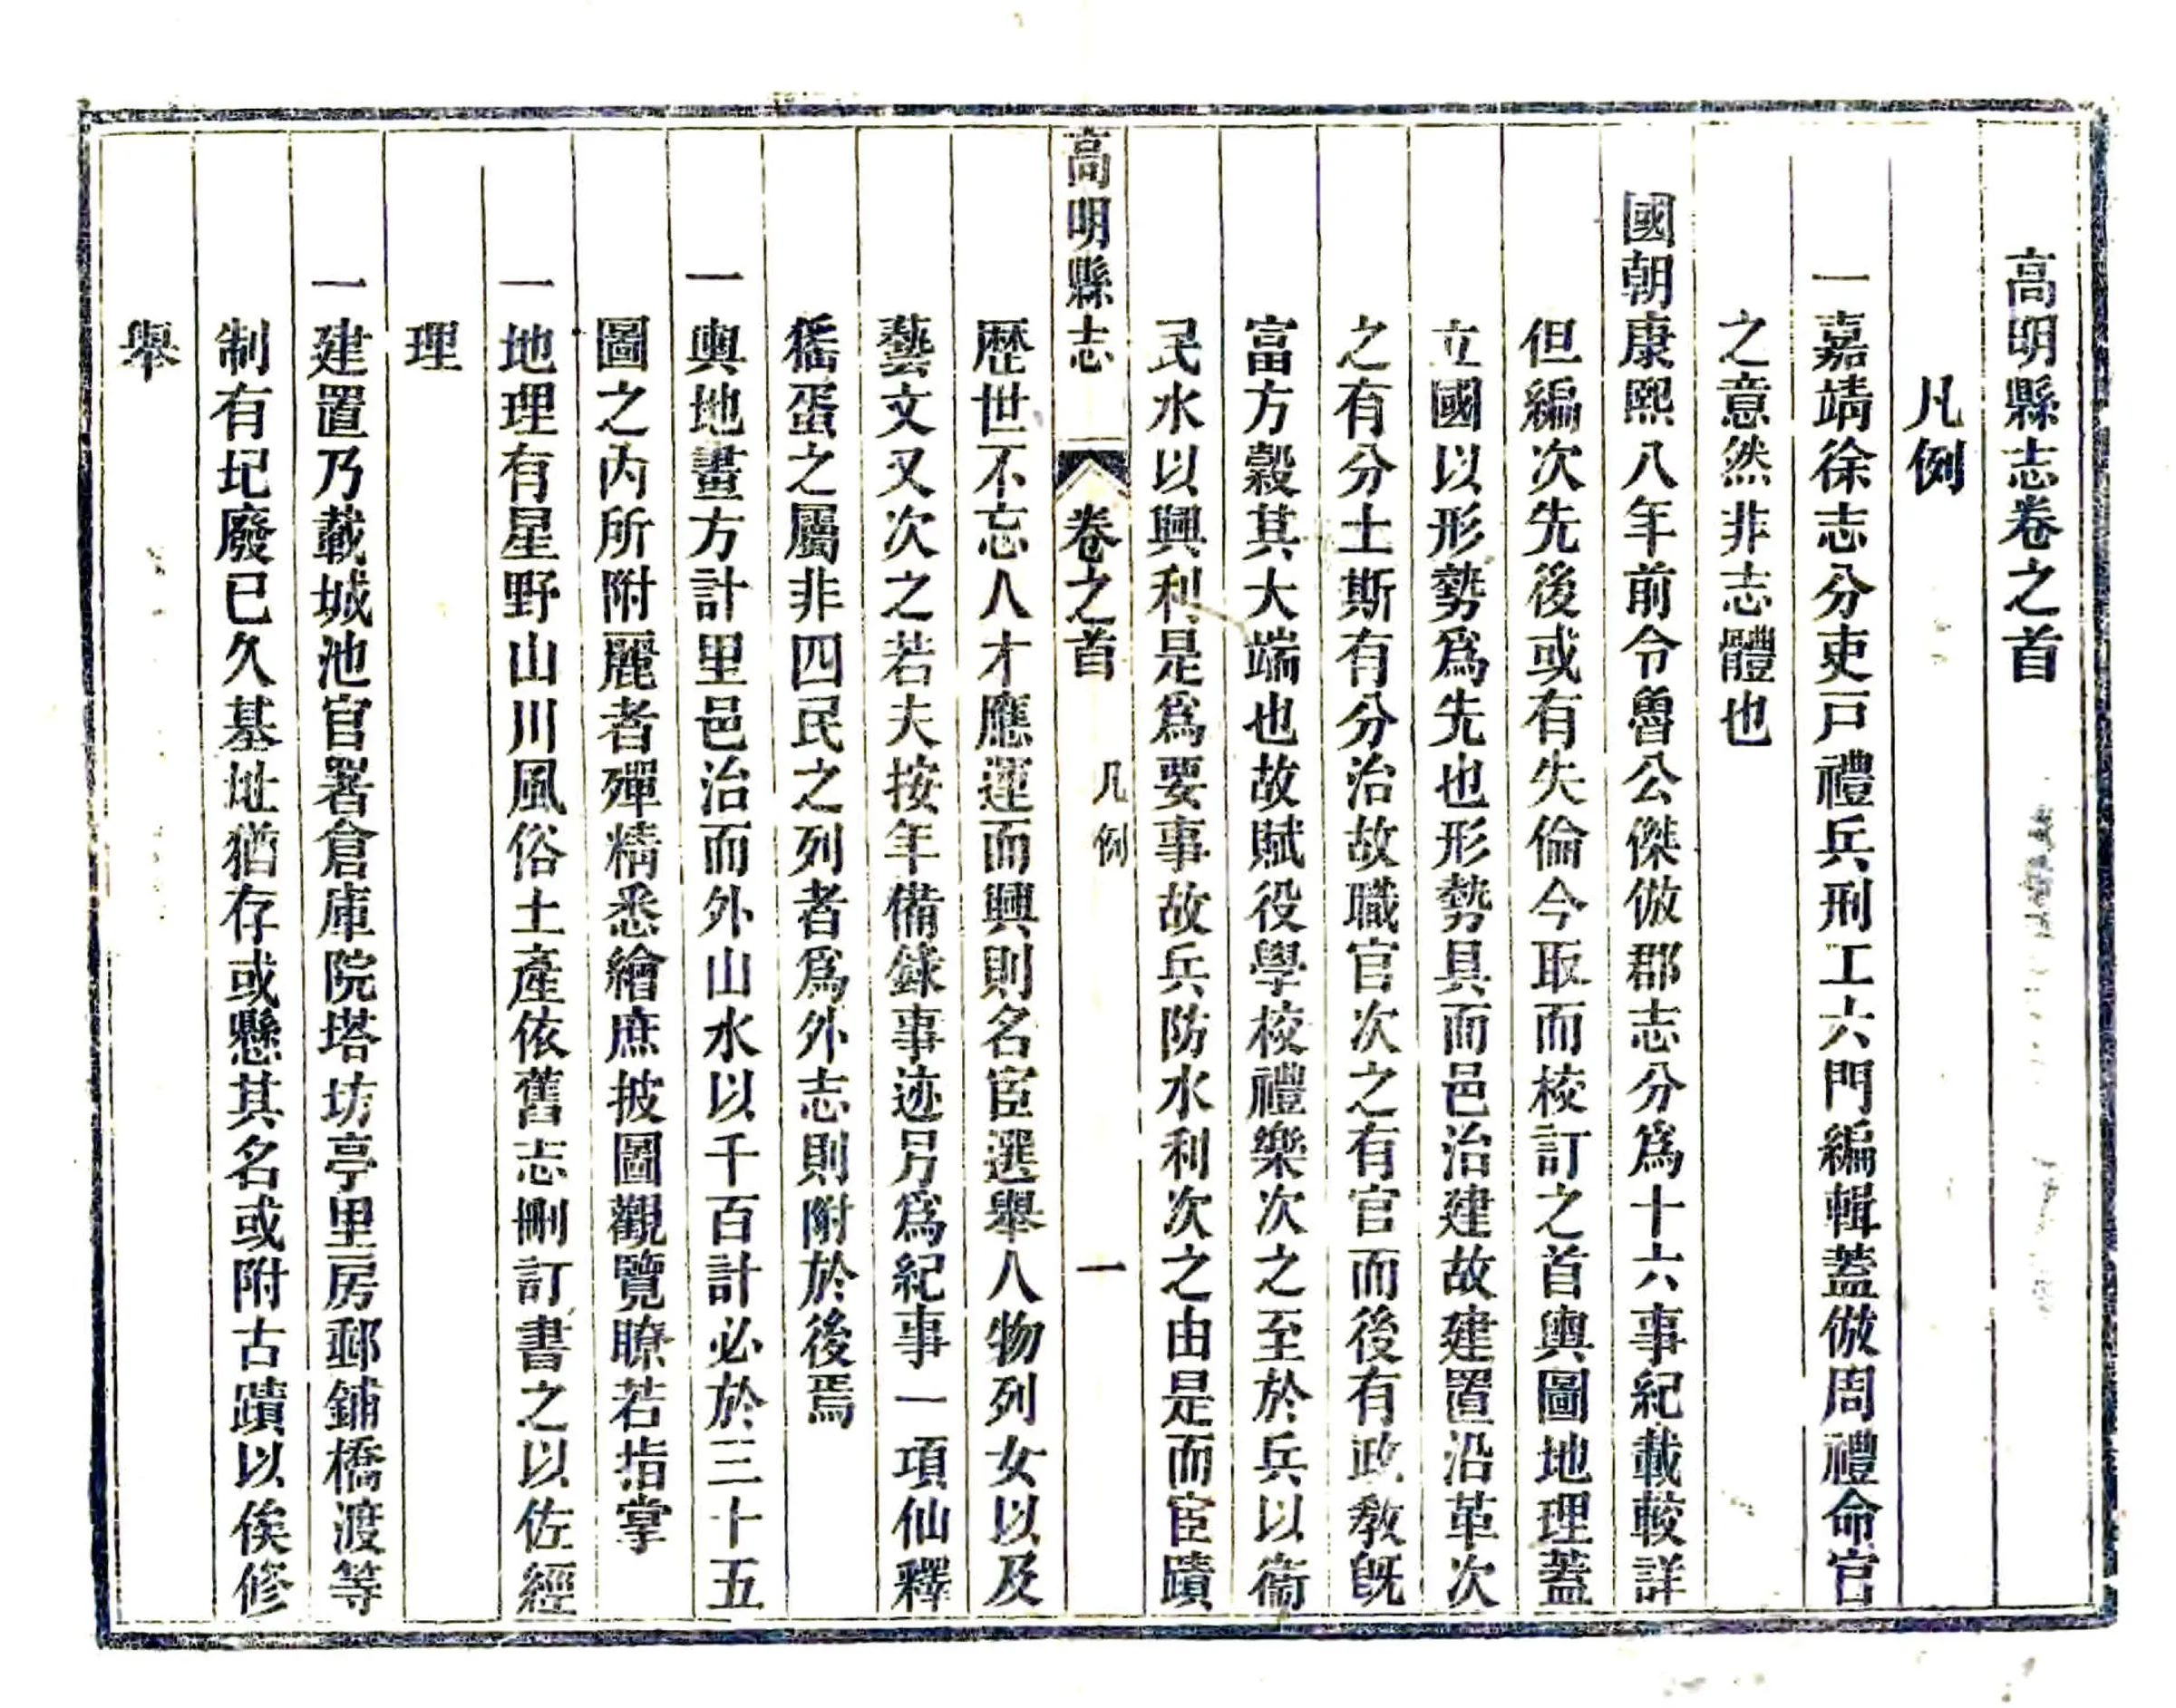 高明縣志卷之首
凡例
一嘉靖徐志分吏戸禮兵刑工六門編輯蓋倣周禮命官
之意然非志體也
國朝康熙八年前令魯公傑倣郡志分爲十六事紀載較詳
但編次先後或有失倫今取而校訂之首輿圖地理蓋
立國以形勢爲先也形勢具而邑治建故建置沿革次
之有分土斯有分治故職官次之有官而後有政敎旣
富方穀其大端也故賦役學校禮樂次之至於兵以衞
民水以興利是爲要事故兵防水利次之由是而宦蹟
高明縣志
卷之首
凡例
一
歷世不忘人才應運而興則名宦選舉人物列女以及
藝文又次之若夫按年備錄事迹另爲紀事一項仙釋
猺蛋之屬非四民之列者爲外志則附於後焉
一輿地畫方計里邑治而外山水以千百計必於三十五
圖之內所附麗者殫精悉繪庶披圖觀覽瞭若指掌
一地理有星野山川風俗土產依舊志刪訂書之以佐經
理
一建置乃載城池官署倉庫院塔坊亭里房郵鋪橋渡等
制有圮廢已久基址猶存或懸其名或附古蹟以俟修
舉